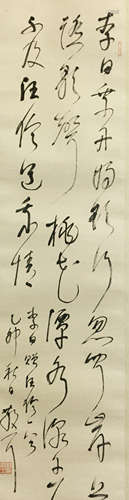 李白乘舟將欲行忽聞岸上
踏歌聲桃花潭水深千尺
不及汪倫送我情
李白贈汪倫一首
乙卯秋日